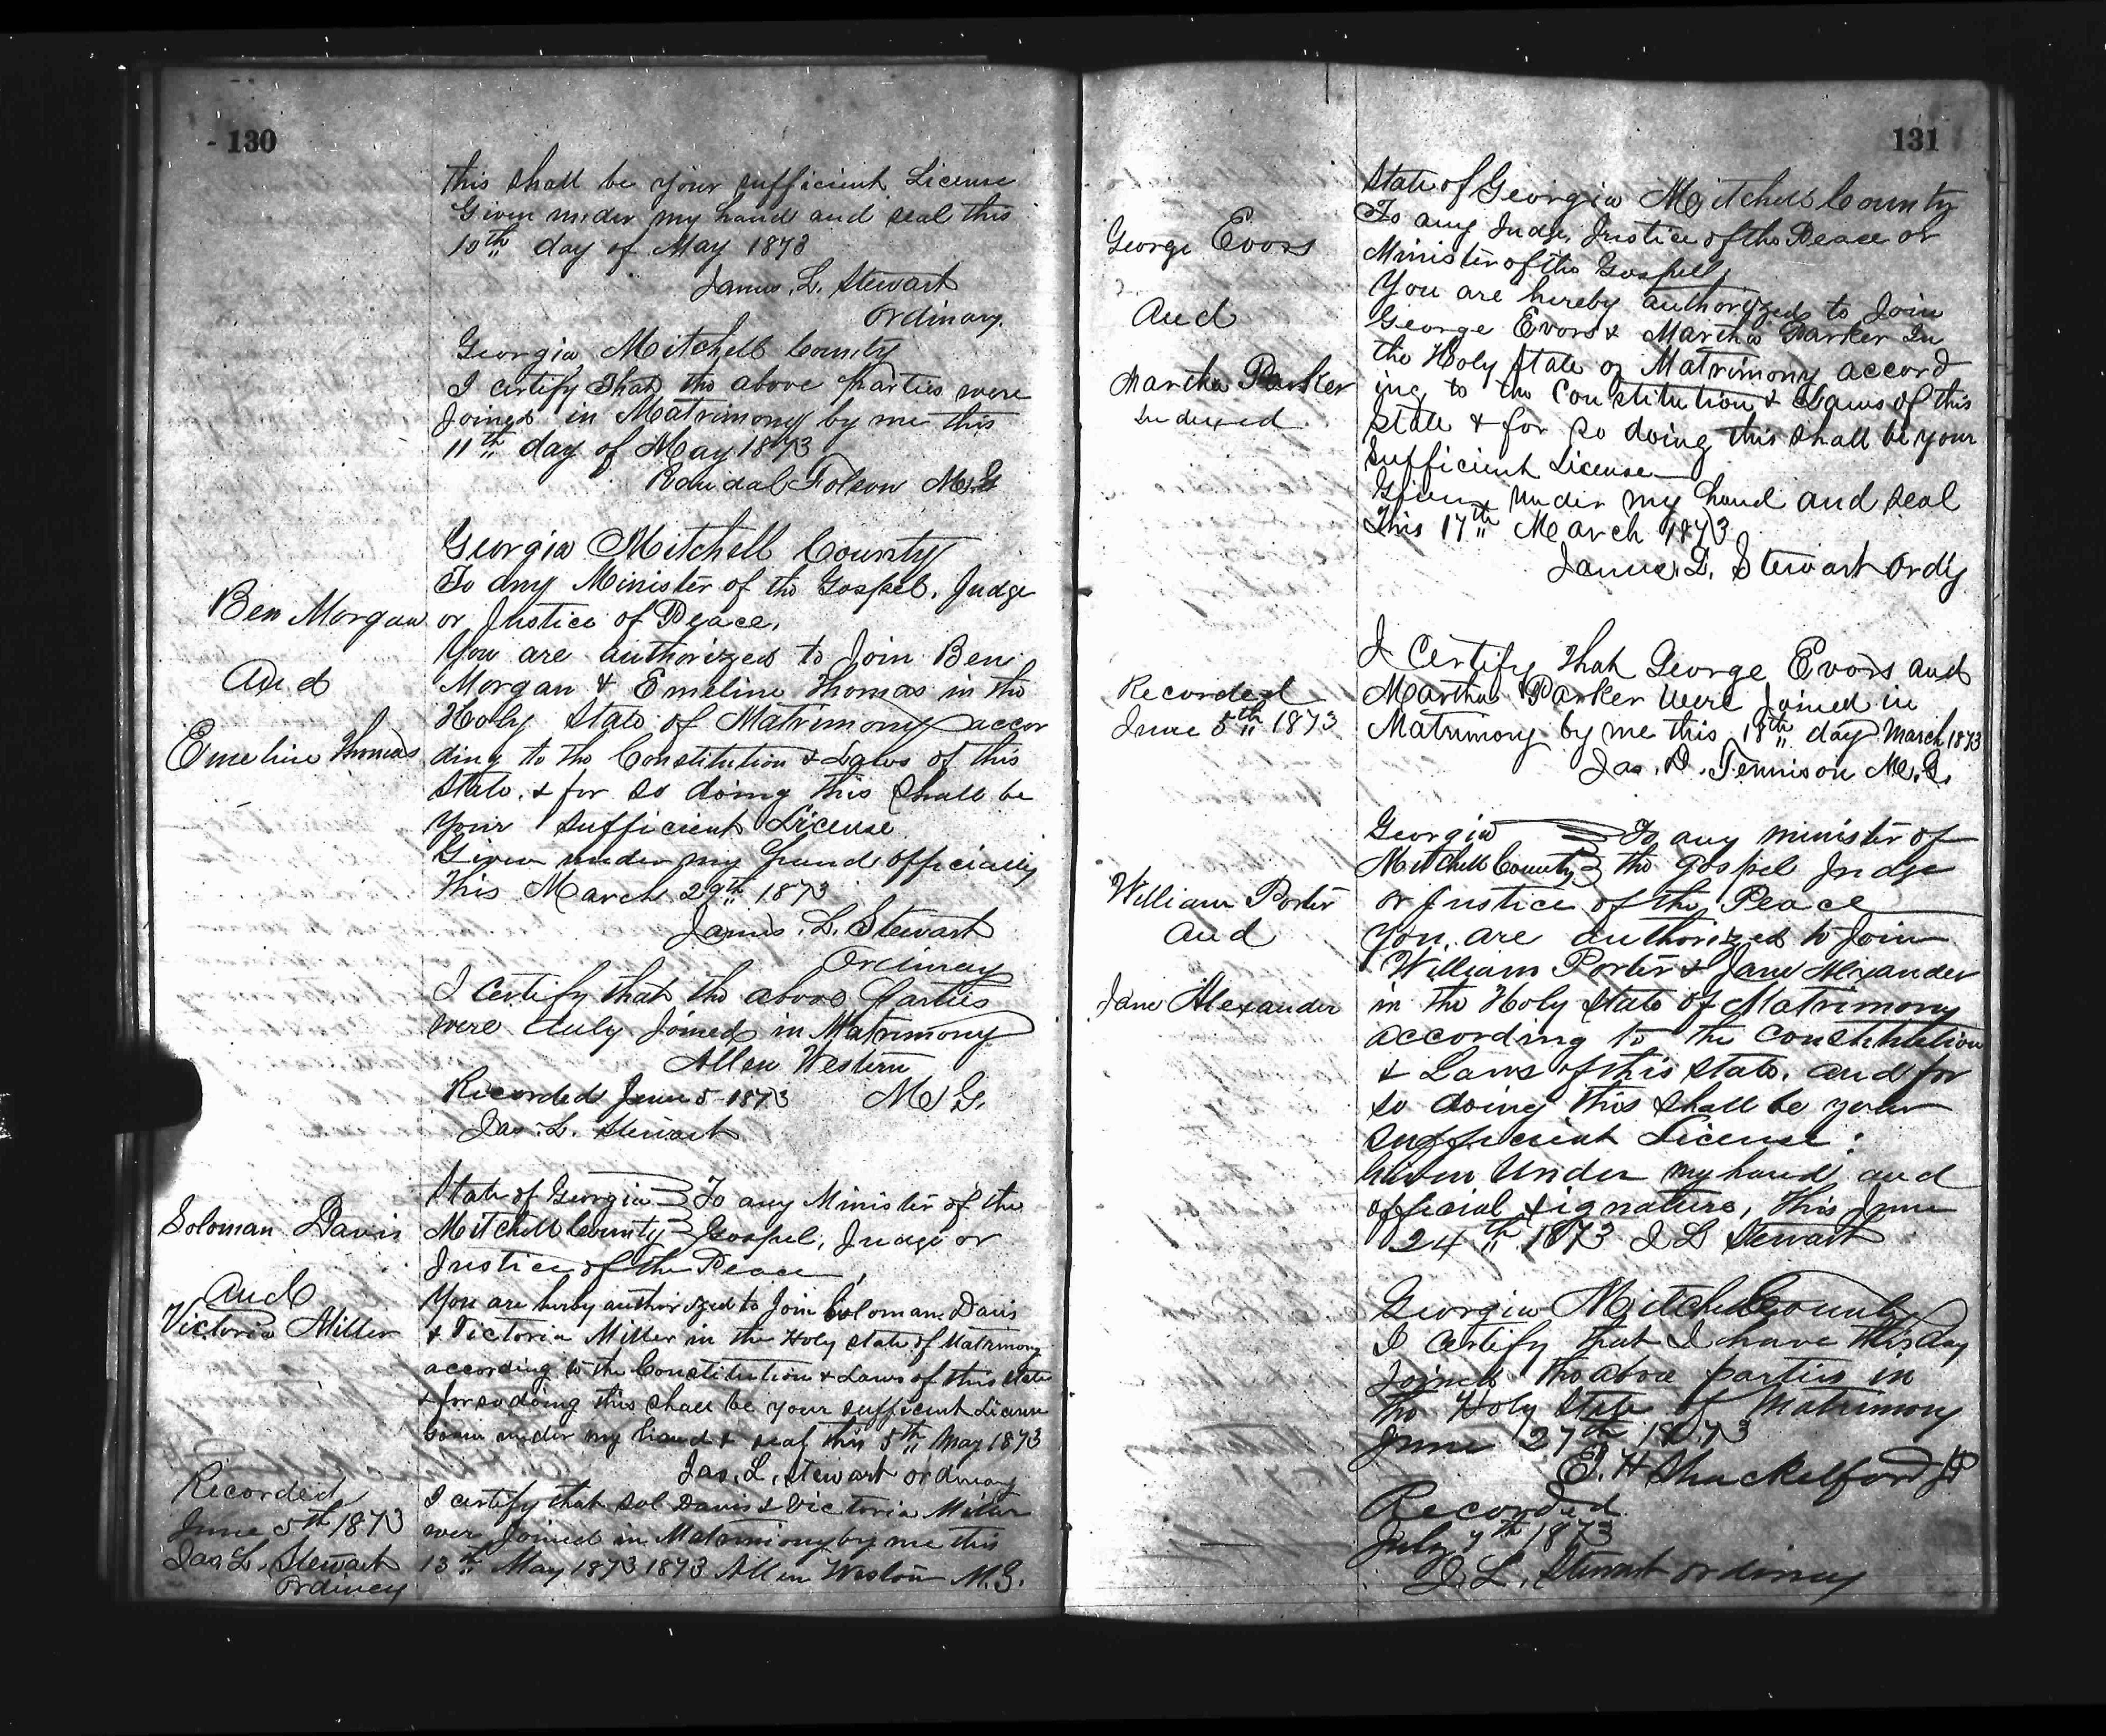 130
this shall be your sufficient License
Given under my hand and seal this
10th day of May 1873
James. L. Stewart
Ordinary.
Georgia Mitchell County
I certify That the above Parties were
Joined in Matrimony by me this
11th day of May 1873
Randal Folson M.G
Georgia Mitchell County
To any Minister of the Gospel, Judge
or Justice of Peace,
You are authorized to Join Ben
Morgan & Emeline Thomas in the
Holy State of Matrimony accor
ding to the Constitution & Laws of this
State, & for so doing this Shall be
Your Sufficient License
Given under my hand officially
this March 29th 1873
James. L. Stewart
Ordinary
I Certify that the above Parties
were duly Joined in Matrimony
Allen Western
Recorded June 5 1873 M G.
Jas. L. Stewart
Ben Morgan
And
Emeline Thomas
State of Georgia } To any Minister of the
Mitchell County } Gospel, Judge or
Justice of the Peace,
You are hereby authorized to Join Soloman Davis
& Victoria Miller in the Holy State of Matrimony
according to the Constitution & Laws of this State
& for so doing this shall be your sufficient License
Given under my hand & seal this 5th May 1873
Jas. L. Stewart ordinary
I certify that Sol Davis & Victoria Miller
were Joined in Matrimony by me this
13th May 1873 1873 Allen Weston M.G.
Soloman Davis
And
Victoria Miller
Recorded
June 5th 1873
Jas L. Stewart
ordinary
131
State of Georgia Mitchell County
To any Judge, Justice of the Peace or
Minister of the Gospell,
You are hereby authorized to Join
George Evors & Martha Parker In
the Holy State of Matrimony accord
ing to the Constitution & Laws of this
State & for so doing this shall be your
Sufficient License
Given under my hand and seal
This 17th March 1873
James L. Stewart Ordy
I Certify that George Evors and
Martha Parker were Joined in
Matrimony by me this 18th day March 1873
Jas. D. Tennison M.G.
George Evors
And
Martha Parker
Indexed
Recorded
June 5th 1873
Georgia } To any minister of
Mitchell County } the Gospel Judge
or Justice of the Peace
You are authorized to Join
William Porter & Jane Alexander
in the Holy State of Matrimony
according to the Constitution
& Laws of this State. and for
so doing this shall be your
Sufficient License.
Given Under my hand and
official signature, this June
24th 1873 J L Stewart
Georgia Mitchell County
I certify that I have this day
Joined the above parties in
the Holy State of Matrimony
June 27th 1873
E. H Shackelford JP
Recorded
July 7th 1873
J. L. Stewart ordinary
William Porter
And
Jane Alexander